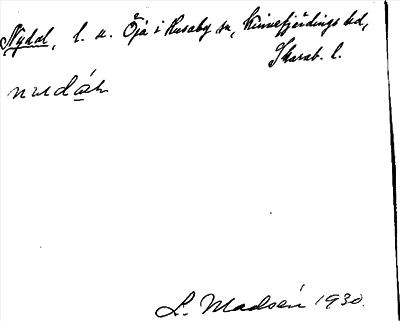 Nydal, l. u. Öja i Husaby sn, Kinnefjärdings hd,
Skarab. l.
L. Madsén 1930.